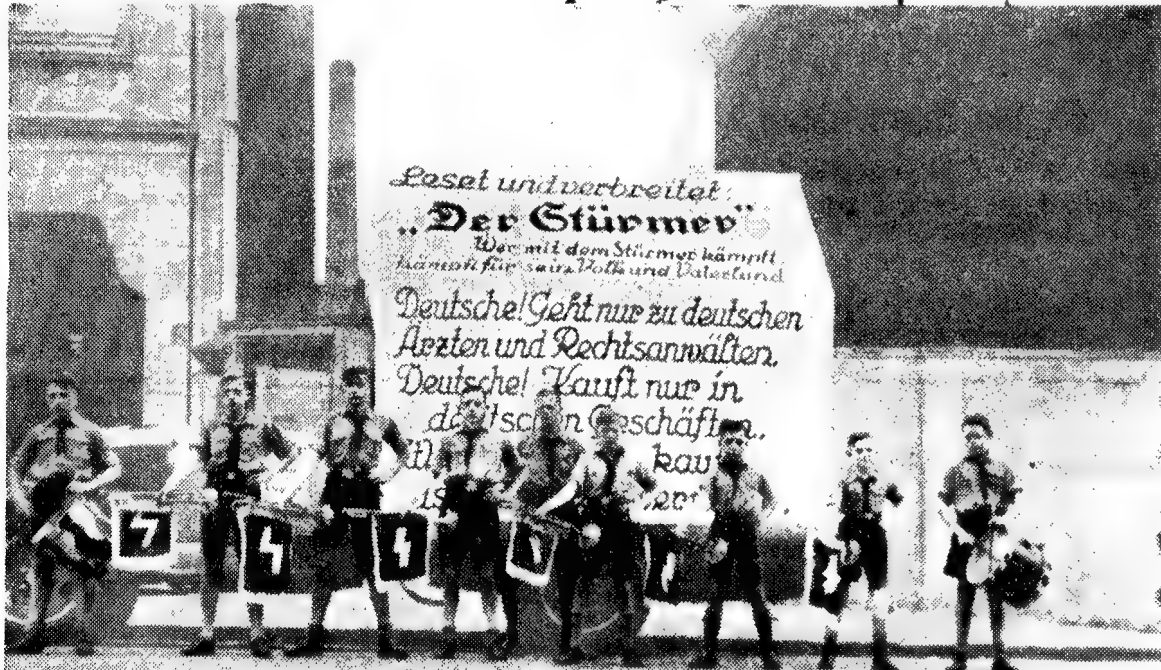 Leset und verbreitet:
„Der Stürmer"
Wer mit dem Stürmer kämpft
kämpft für sein Volk und Vaterland
Deutsche! Geht nur zu deutschen
Ärzten und Rechtsanwälten.
Deutsche! Kauft nur in
deutschen Geschäften.